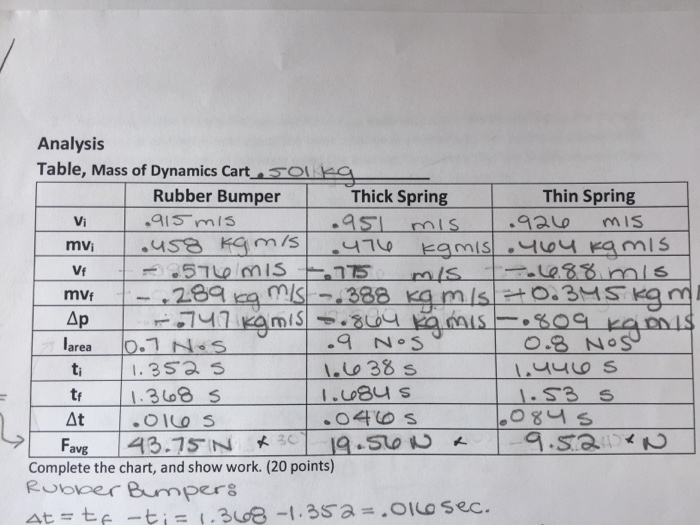 Analysis
Table, Mass of Dynamics Cart .501 kg
Rubber Bumper Thick Spring Thin Spring
Vi .915 m/s .951 m/s .926 m/s
mvi .458 kg m/s .476 kg m/s .464 kg m/s
Vf -.576 m/s -.775 m/s -.688 m/s
mvf -.289 kg m/s -.388 kg m/s -0.345 kg m/
Δp -.747 kg m/s -.864 kg m/s -.809 kg m/s
Iarea 0.7 N•s .9 N•s 0.8 N•s
ti 1.352 s 1.638 s 1.446 s
tf 1.368 s 1.684 s 1.53 s
Δt .016 s .046 s .084 s
Favg 43.75 N 19.56 N 9.52 N
Complete the chart, and show work. (20 points)
Rubber Bumper:
Δt = tf - ti = 1.368 - 1.352 = .016 sec.